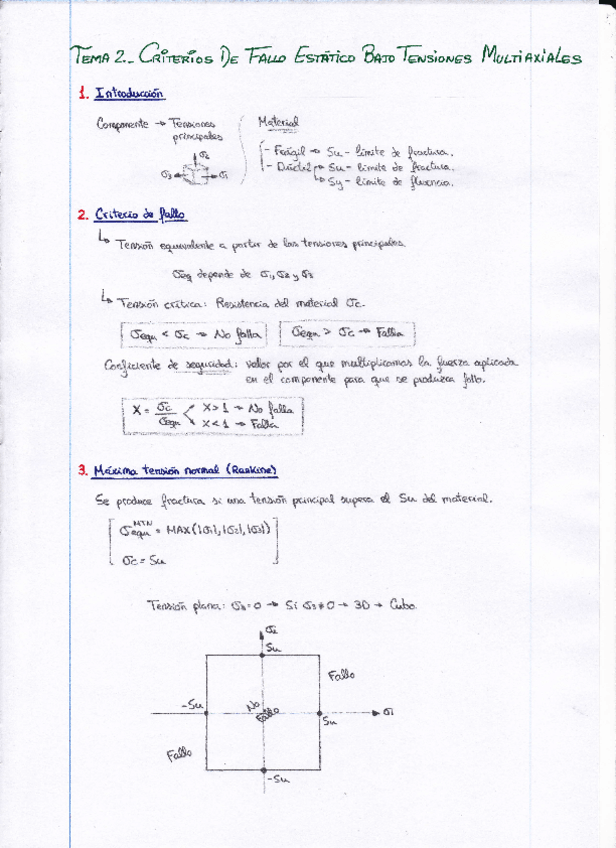 TEMA 2._ CRITERIOS DE FALLO ESTÁTICO BAJO TENSIONES MULTIAXIALES
1. Introducción
Componente → Tensiones principales
σ2
σ3
σ1
Material
- Frágil → Su - límite de fractura.
- Dúctil → Su - límite de fractura.
→ Sy - límite de fluencia.
2. Criterio de fallo
↳ Tensión equivalente a partir de las tensiones principales.
σeq depende de σ1, σ2 y σ3
↳ Tensión crítica: Resistencia del material σc.
σequ < σc → No falla
σequ > σc → Falla
Coeficiente de seguridad: valor por el que multiplicamos la fuerza aplicada
en el componente para que se produzca fallo.
X = σc/σequ
X > 1 → No falla
X < 1 → Falla
3. Máxima tensión normal (Rankine)
Se produce fractura si una tensión principal supera el Su del material.
σequ^MTN = MAX(|σ1|, |σ2|, |σ3|)
σc = Su
Tensión plana: σ3 = 0 → Si σ3 ≠ 0 → 3D → Cubo.
σ2
Su
Fallo
-Su
No
Fallo
σ1
Su
Fallo
-Su